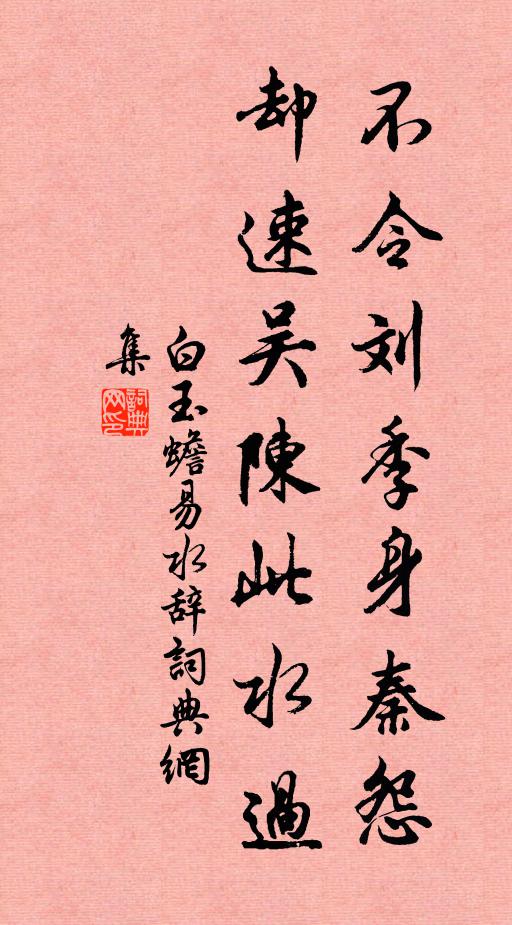 不令刘季身秦怨
却速吴陳此水過
白玉蟾易水辞詞典網
集
詞典網印